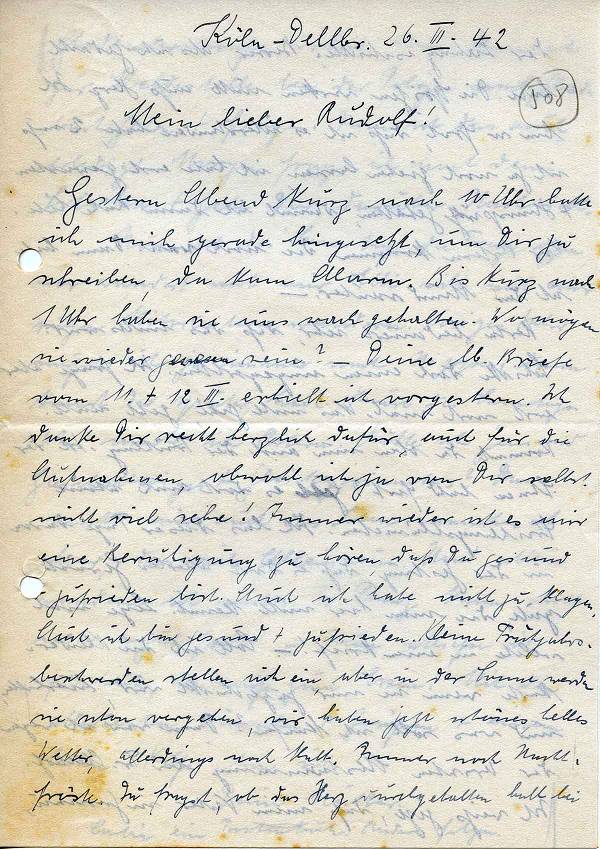 Köln-Dellbr. 26. III. 42
108
Mein lieber Rudolf!
Gestern Abend kurz nach 10 Uhr hatte
ich mich gerade hingesetzt, um Dir zu
schreiben, da kam Alarm. Bis kurz nach
1 Uhr haben sie uns wach gehalten. Wo mögen
sie wieder gewesen sein? – Deine lb. Briefe
vom 11. + 12. III. erhielt ich vorgestern. Ich
danke Dir recht herzlich dafür, auch für die
Aufnahmen, obwohl ich ja von Dir selbst
nicht viel sehe! Immer wieder ist es mir
eine Beruhigung zu hören, daß Du gesund
+ zufrieden bist. Auch ich habe nicht zu klagen,
Auch ich bin gesund + zufrieden. Kleine Frühjahrs-
beschwerden stellen sich ein, aber in der Sonne werden
sie schon vergehen, wir haben jetzt schönes helles
Wetter, allerdings noch kalt. Immer noch Nacht-
fröste. Du fragst, ob das Herz durchgehalten hat bei